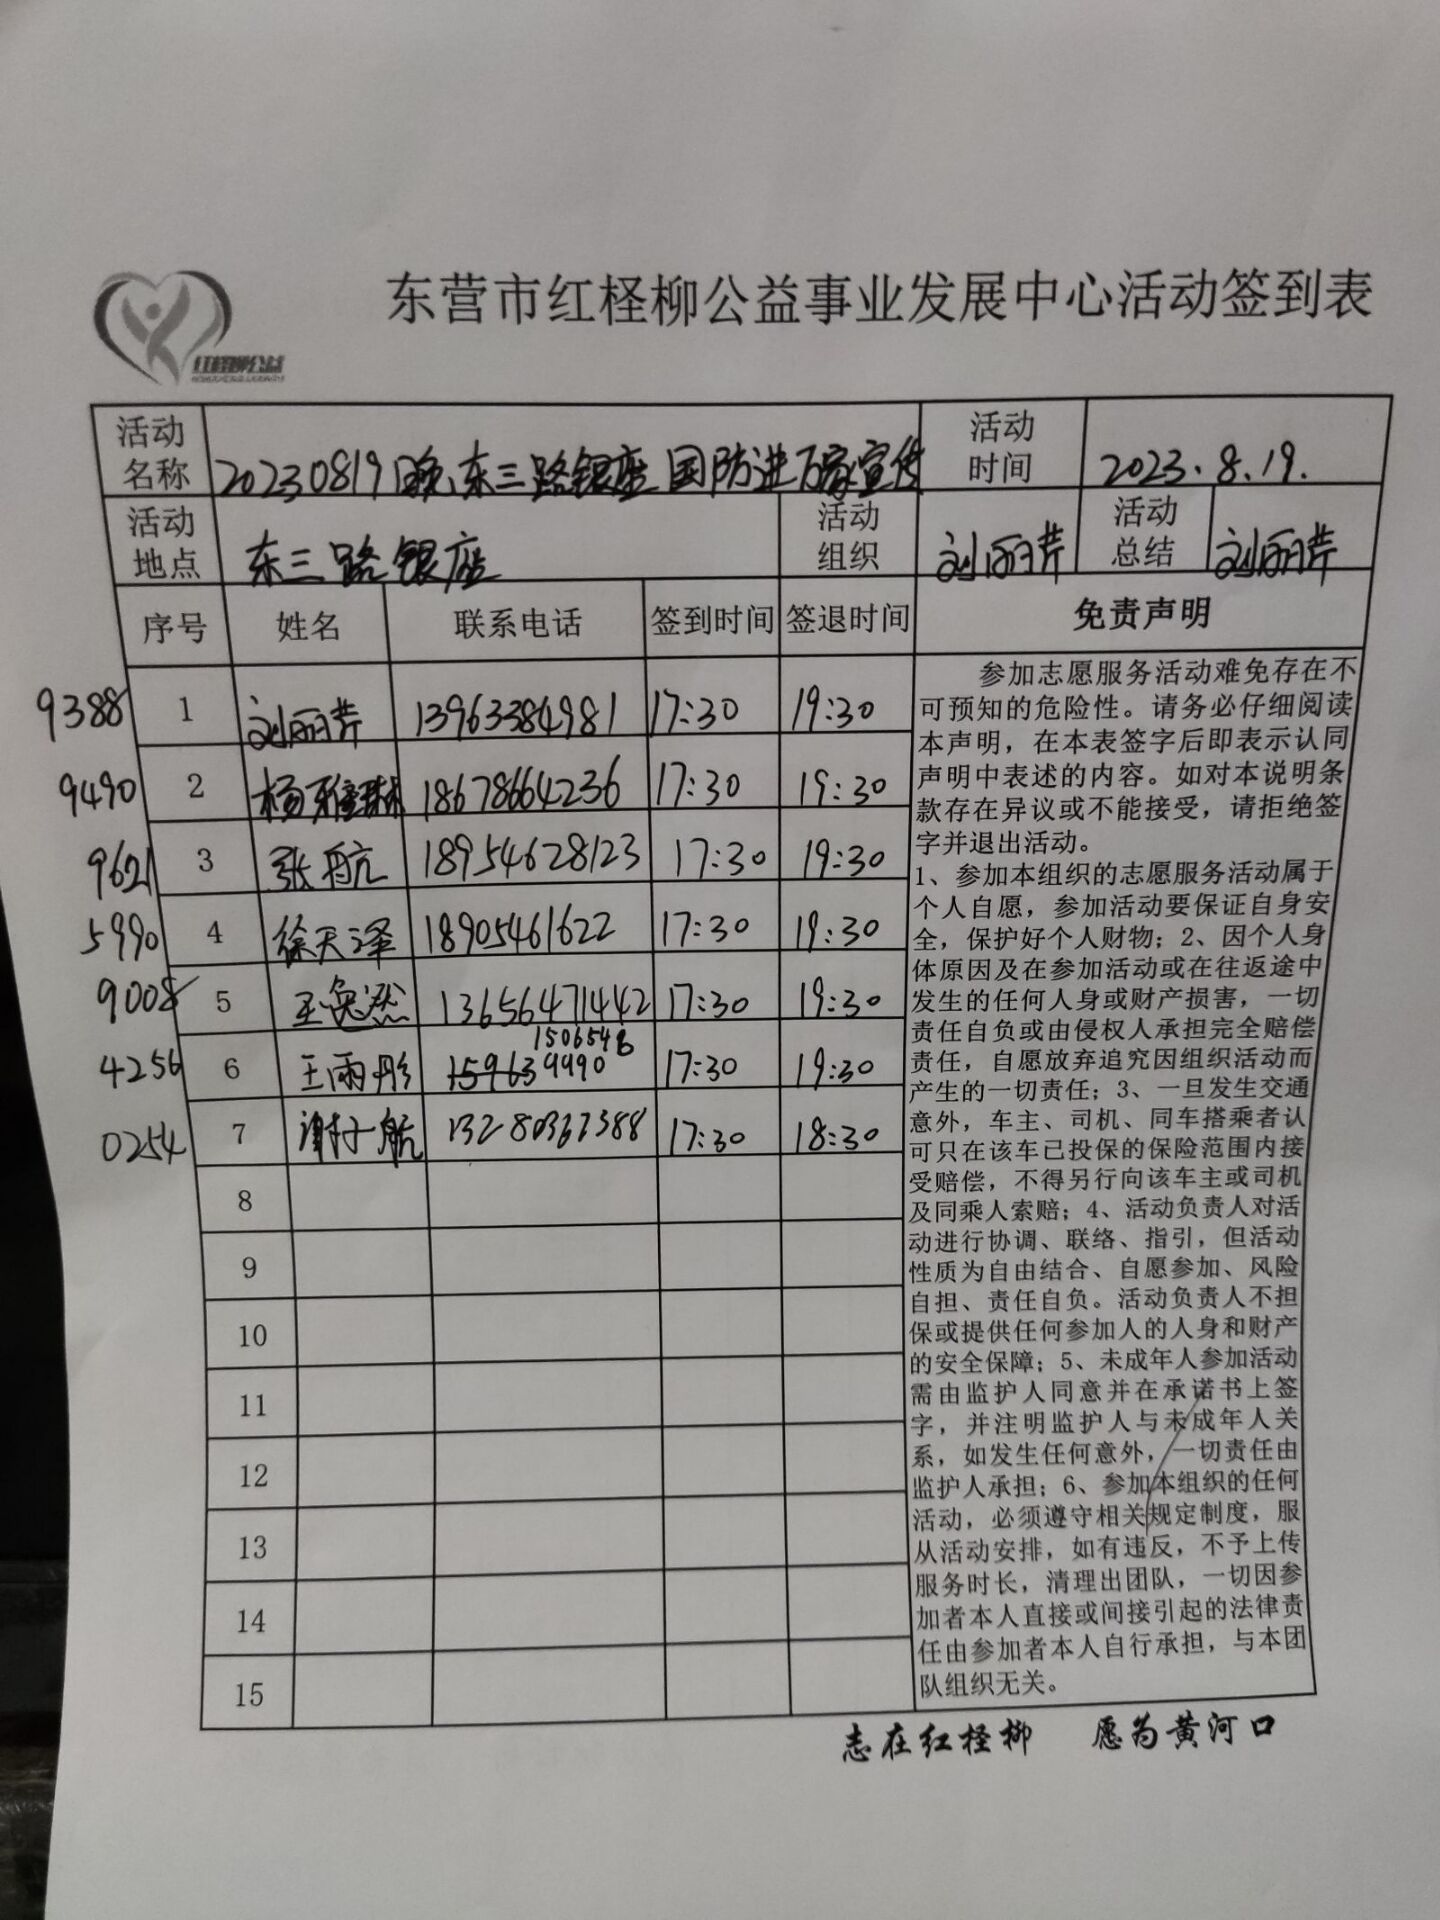 东营市红柽柳公益事业发展中心活动签到表
红柽柳公益
活动名称 20230819晚东三路银座国防进万家宣传 活动时间 2023.8.19.
活动地点 东三路银座 活动组织 刘丽芹 活动总结 刘丽芹
序号 姓名 联系电话 签到时间 签退时间 免责声明
9388 1 刘丽芹 13963384981 17:30 19:30
9490 2 杨雅琳 18678664236 17:30 19:30
9621 3 张航 18954628123 17:30 19:30
5990 4 徐天泽 18905461622 17:30 19:30
9008 5 王逸然 13656471442 17:30 19:30
1506548
4256 6 王雨彤 159639990 17:30 19:30
0254 7 谢好航 13280367388 17:30 18:30
8
9
10
11
12
13
14
15
参加志愿服务活动难免存在不
可预知的危险性。请务必仔细阅读
本声明，在本表签字后即表示认同
声明中表述的内容。如对本说明条
款存在异议或不能接受，请拒绝签
字并退出活动。
1、参加本组织的志愿服务活动属于
个人自愿，参加活动要保证自身安
全，保护好个人财物；2、因个人身
体原因及在参加活动或在往返途中
发生的任何人身或财产损害，一切
责任自负或由侵权人承担完全赔偿
责任，自愿放弃追究因组织活动而
产生的一切责任；3、一旦发生交通
意外，车主、司机、同车搭乘者认
可只在该车已投保的保险范围内接
受赔偿，不得另行向该车主或司机
及同乘人索赔；4、活动负责人对活
动进行协调、联络、指引，但活动
性质为自由结合、自愿参加、风险
自担、责任自负。活动负责人不担
保或提供任何参加人的人身和财产
的安全保障；5、未成年人参加活动
需由监护人同意并在承诺书上签
字，并注明监护人与未成年人关
系，如发生任何意外，一切责任由
监护人承担；6、参加本组织的任何
活动，必须遵守相关规定制度，服
从活动安排，如有违反，不予上传
服务时长，清理出团队，一切因参
加者本人直接或间接引起的法律责
任由参加者本人自行承担，与本团
队组织无关。
志在红柽柳 愿为黄河口